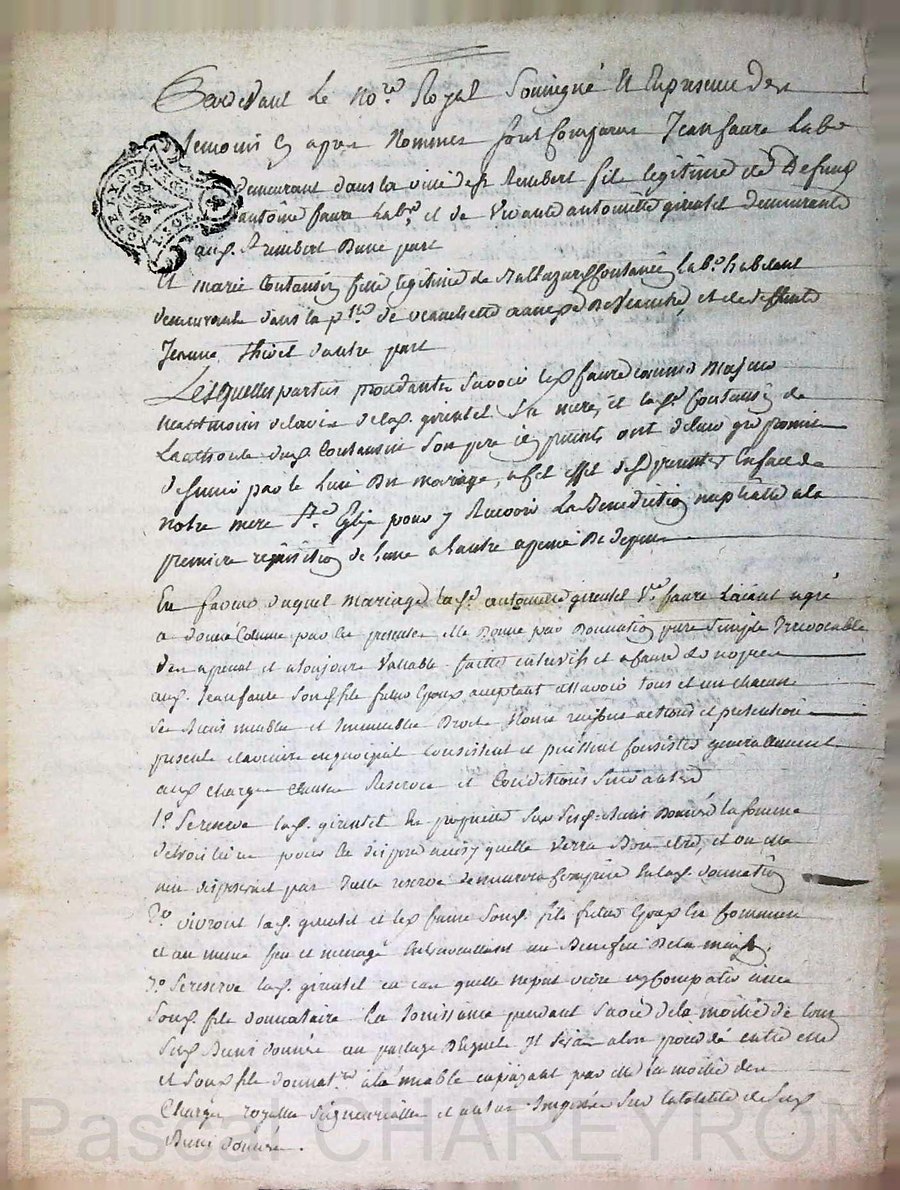 Pardevant Le No.re Royal Soussigné Et En presence des
Temoins Cy apres Nommes sont Comparus Jean faure Lab.r
demeurant dans la ville de S.t Rembert fils legitime de Defunt
antoine faure Lab.r et de vivante antoinette girentet demeurante
aud. S.t Rembert Dune part
Et marie Coutansin fille legitime de Baltazar Coutansin Lab.r habitant
demeurante dans la p.sse de annexe De et de deffunte
Jeanne thivet dautre part
Lesquelles parties procedantes savoir led. faure comme Majeur
neantmoins de lavis de lad. girentet Sa mere, et lad. Coutansin de
Lauthorité dud. Coutansin Son pere icy presents ont de leur gré promis
de Sunir par le Lien Du mariage, a cet effet de Se presenter En face de
notre mere S.te Eglise pour y Recevoir La Benediction nuptialle a la
premiere requisition de lune a lautre a peine De Depens
En faveur duquel mariage lad. antoinette girentet V.e faure De gré
a donné Comme par les presentes elle Donne par Donnation pure Simple Irrevocable
des a present et a toujours Vallable faitte entre vifs et a
aud. Jean faure Son fils futur Epoux acceptant assavoir tous et un chacuns
Ses Biens meubles et Immeubles Droits Noms raisons actions et pretentions
presents et avenirs en quoi qu'ils Consistent et puissent Consister generallement
aux charges clauses Reserves et Conditions Suivantes
1.o Se reserve lad. girentet En proprieté Sur Sesd. Biens Donnés la somme
de Livres pour en disposer ainsy quelle verra Bon etre, et ou elle
nen disposeroit pas lade reserve demeurera Comprise en lad. donnation
2.o vivront lad. girentet et led. faure Sond. fils futur Epoux En Commun
et au meme feu et menage En travaillant au Benefice De la maison
3.o Se reserve lad. girentet en cas quelle ne put vivre et Compatir avec
Sond. fils donnataire La Jouissance pendant Sa vie de la moitié de tous
Sesd. Biens donnés au partage Desquels Il Sera alors procedé entre elle
et Sond. fils donnat.re a lamiable en payant par elle la moitié des
Charges royalles Seigneurialles et autres Imposées Sur la totalité de Sesd.
Biens donnés.
Pascal CHAREYRON